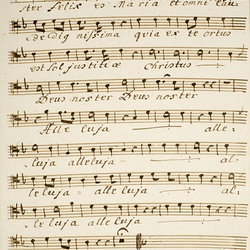 ter Felix es Maria et omni lau
de dig nissima quia ex te ortus
est sol justitiæ Christus
Deus noster Deus noster
Alle luja alle-
luja alleluja - al-
leluja - alleluja - al-
le luja alle luja